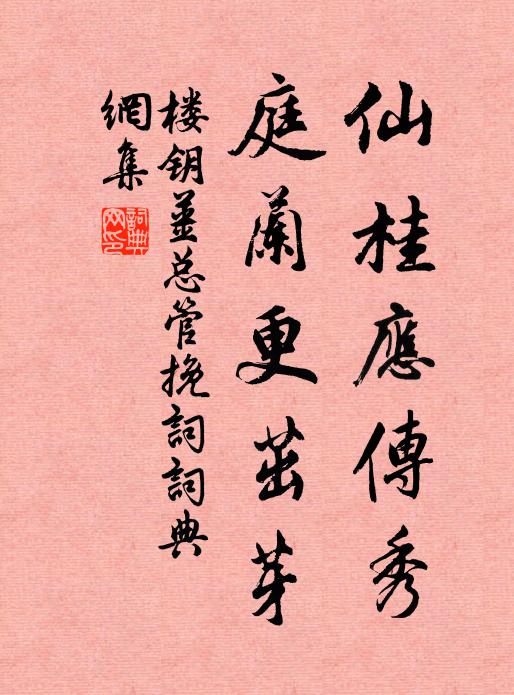 仙桂應傳秀
庭蘭更茁芽
楼钥姜总管挽詞詞典
網集
詞典網印